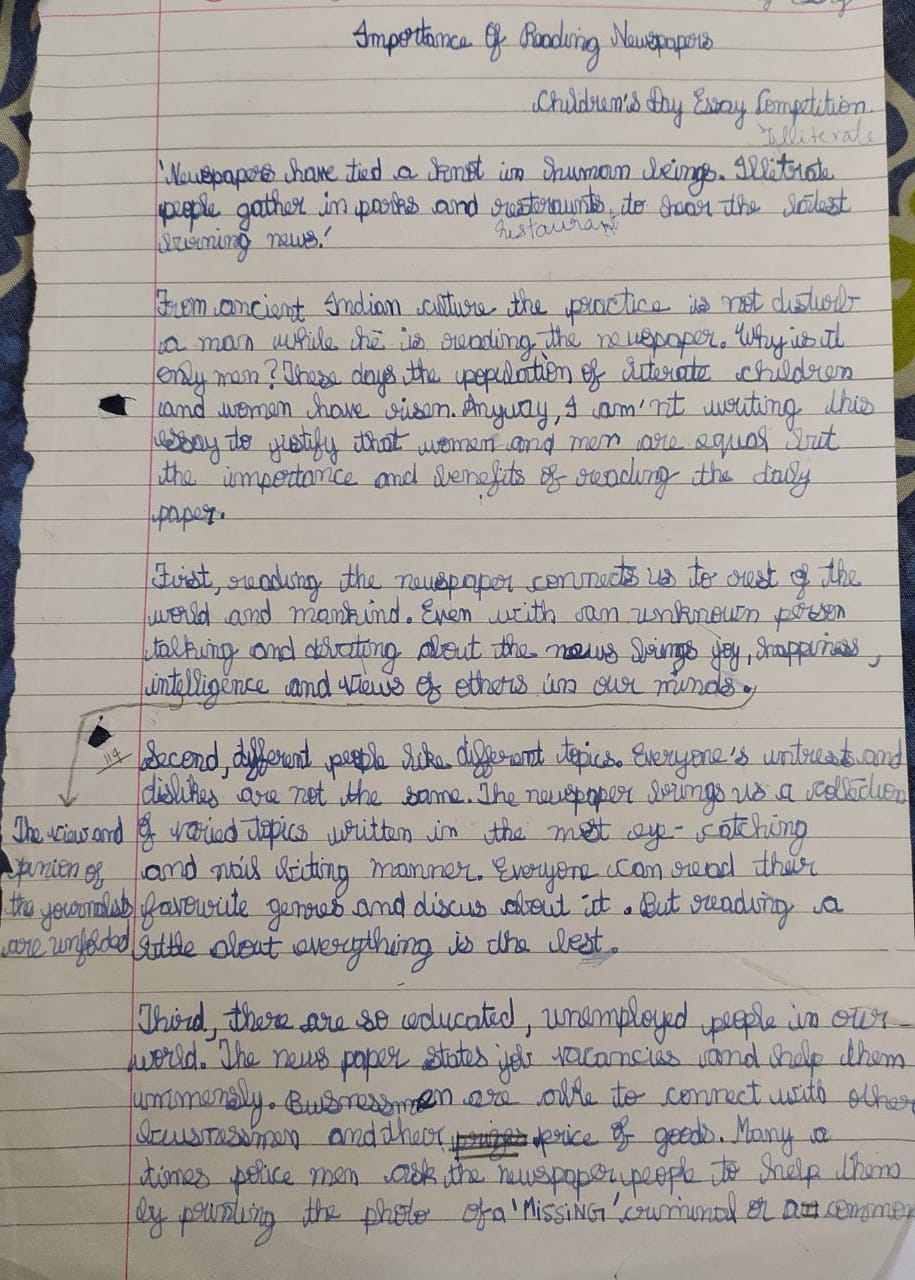 Importance Of Reading Newspapers
Children's Day Essay Competition
Illiterate
'Newspapers have tied a knot in human beings. Illitrate
people gather in parks and restoraunts, to hear the latest
restaurant
burning news.'
From ancient Indian culture the practice is not disturb
a man while he is reading the newspaper. Why is it
only men? These days the population of literate children
and women have risen. Anyway, I am'nt writing this
essay to justify that women and men are equal but
the importance and benefits of reading the daily
paper.
First, reading the newspaper connects us to rest of the
world and mankind. Even with an unknown person
talking and about the news brings joy, happiness,
intelligence and views of others in our minds.
114
Second, different people like different topics. Everyone's and
dislikes are not the same. The newspaper brings us a collection
of varied topics written in the most eye-catching
and nail biting manner. Everyone can read their
favourite genres and discus about it. But reading a
little about everything is the best.
The view and
opinion of
the journalists
are unfolded
Third, there are so educated, unemployed people in our
world. The news paper states job vacancies and help them
immensly. Businessmen are able to connect with other
businessmen and their price of goods. Many a
times police men ask the newspaper people to help them
by printing the photo of a 'MISSING' criminal or a common